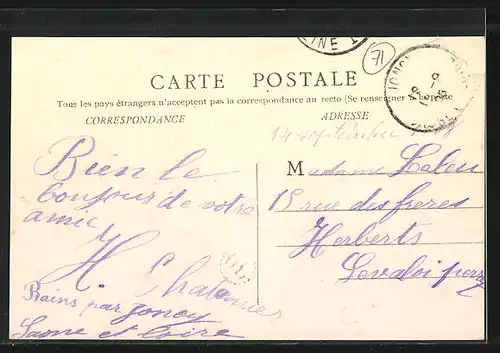 71
CARTE POSTALE
Tous les pays étrangers n'acceptent pas la correspondance au recto (Se renseigner à la poste
CORRESPONDANCE
ADRESSE
14 septembre
Bien le
bonjour de votre
amie
H Chatonnier
Rains par Joncy
Saone et Loire
Madame Leleu
15 rue des freres
Herberts
Levaloi perret
JONCY